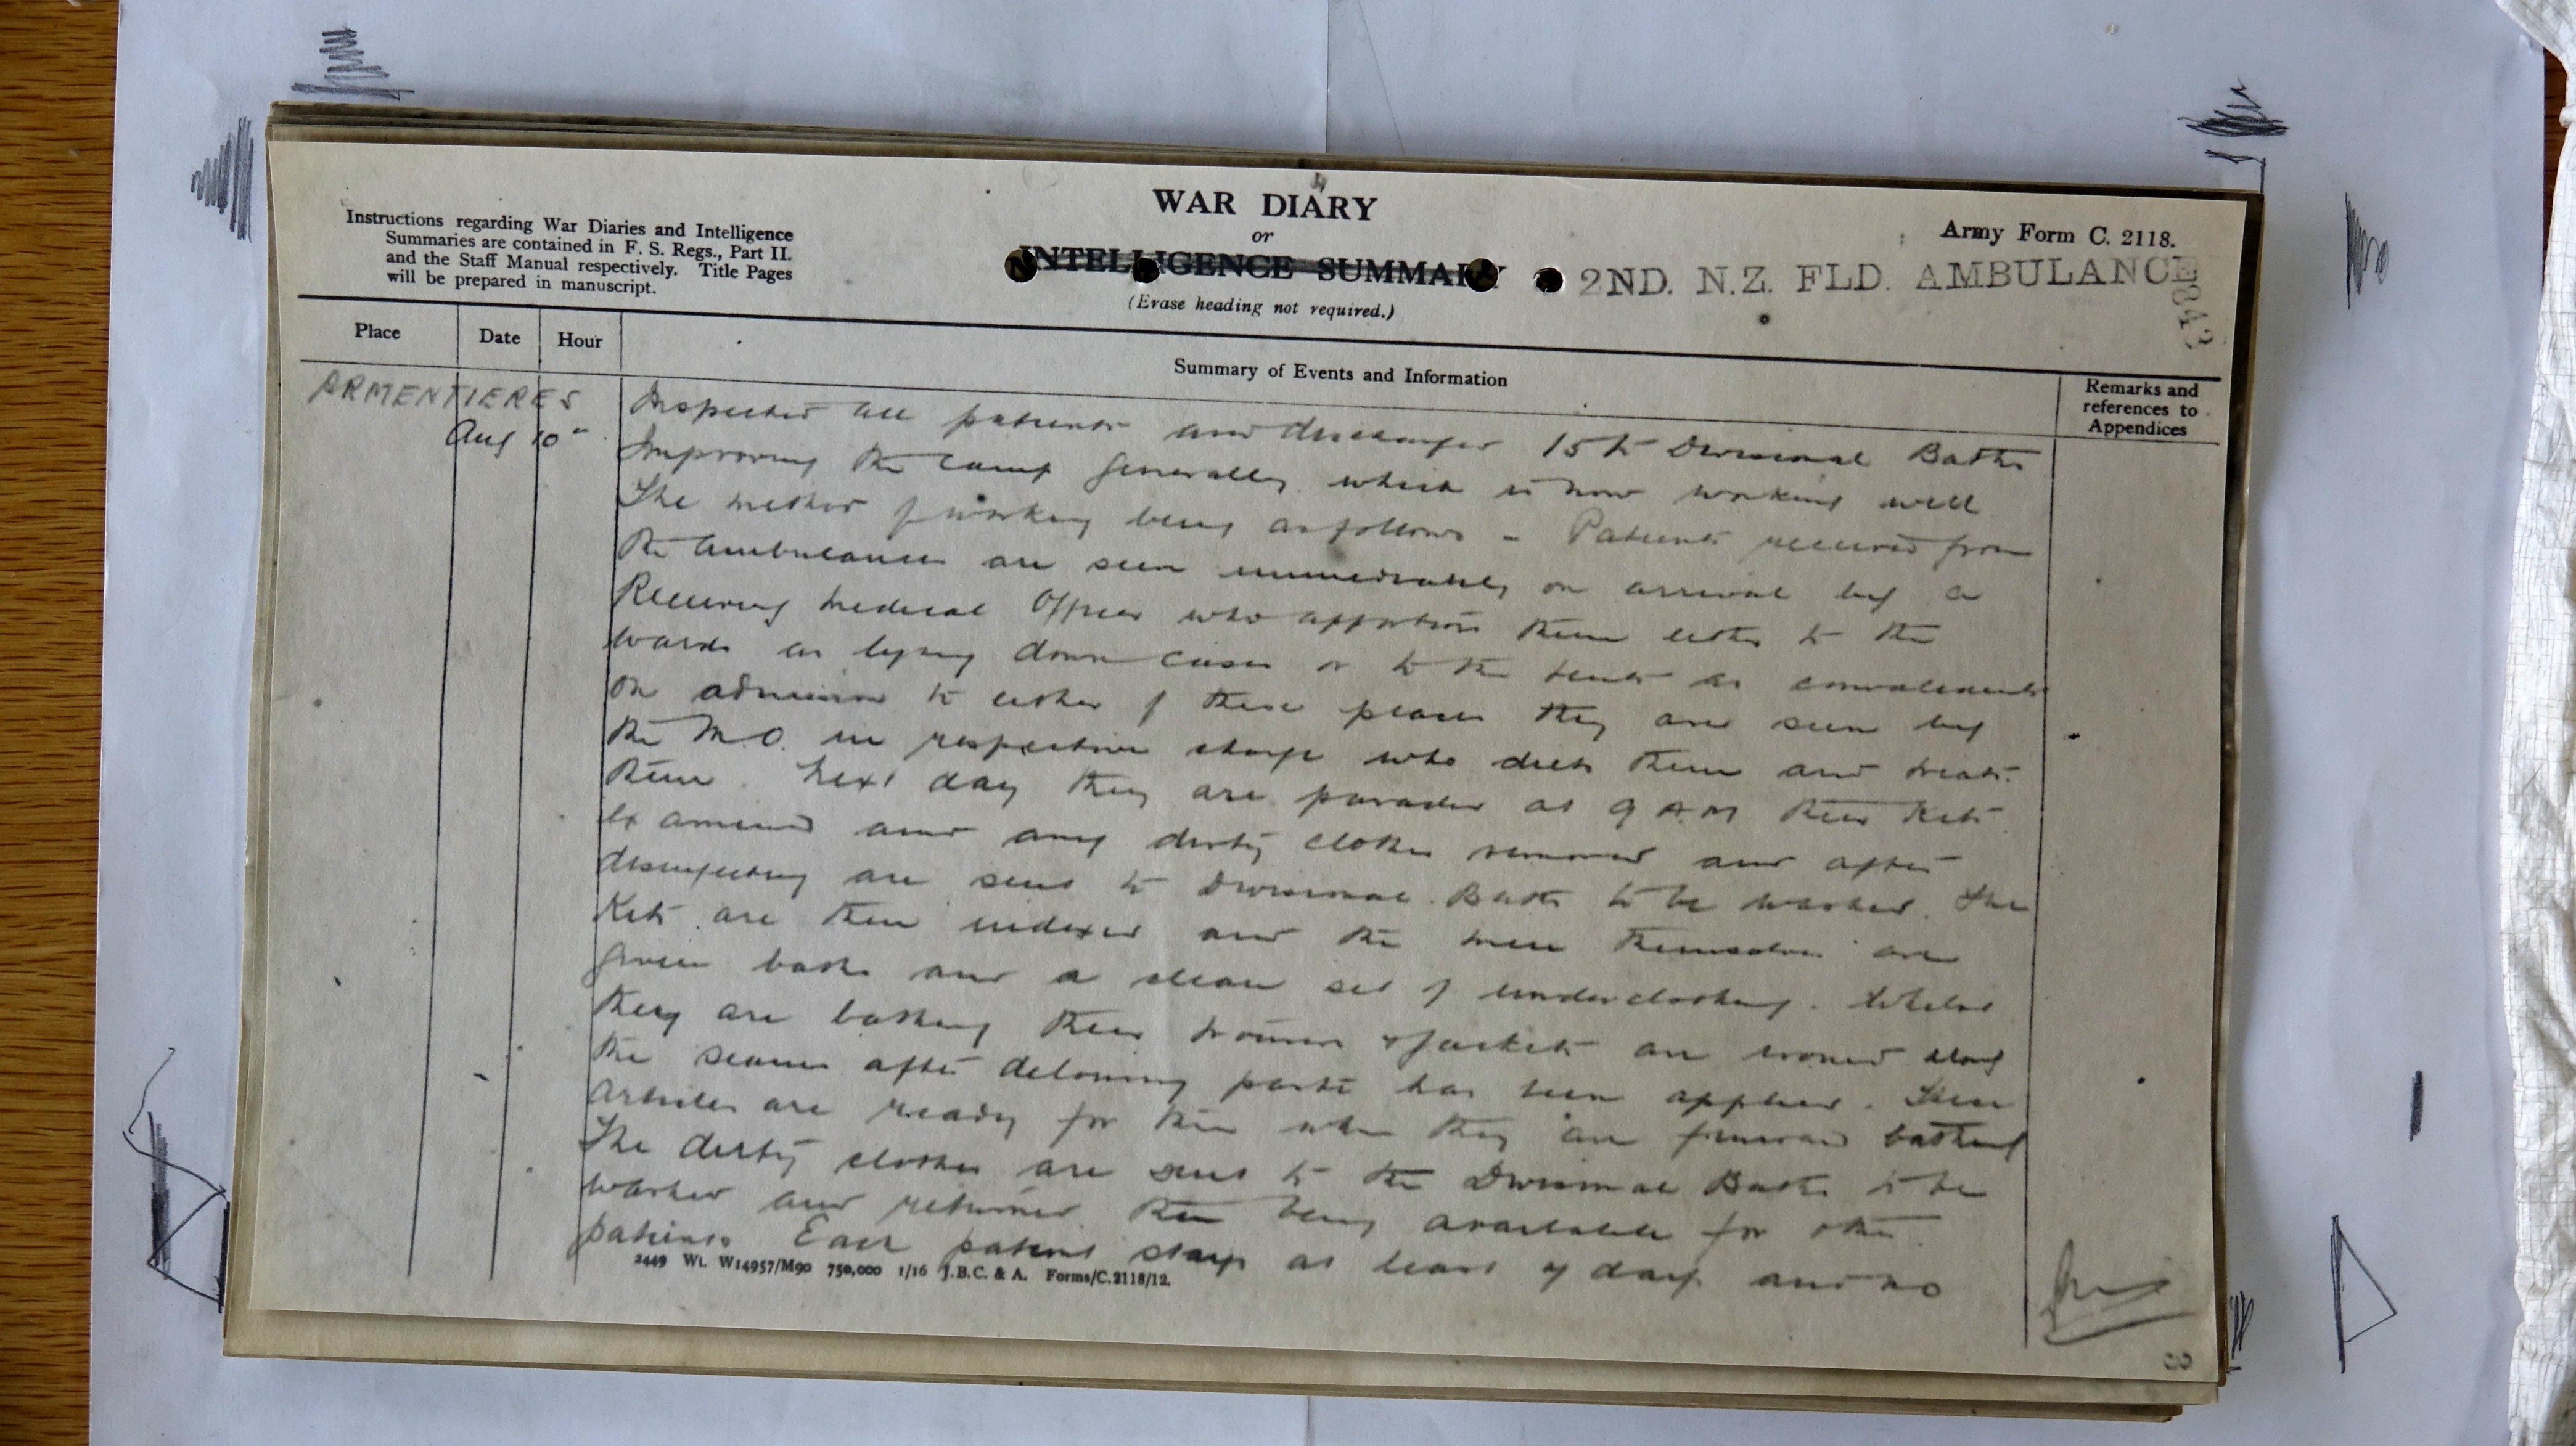 Instructions regarding War Diaries and Intelligence
Summaries are contained in F. S. Regs., Part II.
and the Staff Manual respectively. Title Pages
will be prepared in manuscript.
WAR DIARY
or
INTELLIGENCE SUMMARY
(Erase heading not required.)
Army Form C. 2118.
2ND. N.Z. FLD. AMBULANCE
843
Place
Date
Hour
Summary of Events and Information
Remarks and
references to
Appendices
ARMENTIERES
Aug 10"
Inspected all patients and discharged 15 to Divisional Baths
Improving the camp generally which is now working well
The method of working being as follows - Patients received from
the ambulances are seen immediately on arrival by a
Receiving Medical Officer who apportions them either to the
wards as lying down cases or to the tents as convalescents
On admission to either of these places they are seen by
the M.O. in respective charge who diets them and treats
them. Next day they are paraded at 9 A.M their Kits
examined and any dirty clothes removed and after
disinfecting are sent to Divisional Baths to be washed. The
Kits are then indexed and the men themselves are
given baths and a clean set of underclothing. Whilst
they are bathing their trousers & Jackets are ironed along
the seams after delousing paste has been applied. These
Articles are ready for them when they are finished bathing
The dirty clothes are sent to the Divisional Baths to be
washed and returned then being available for other
patients. Each patient stays at least 7 days and no
2449 Wt. W14957/M90 750,000 1/16 J.B.C. & A. Forms/C.2118/12.